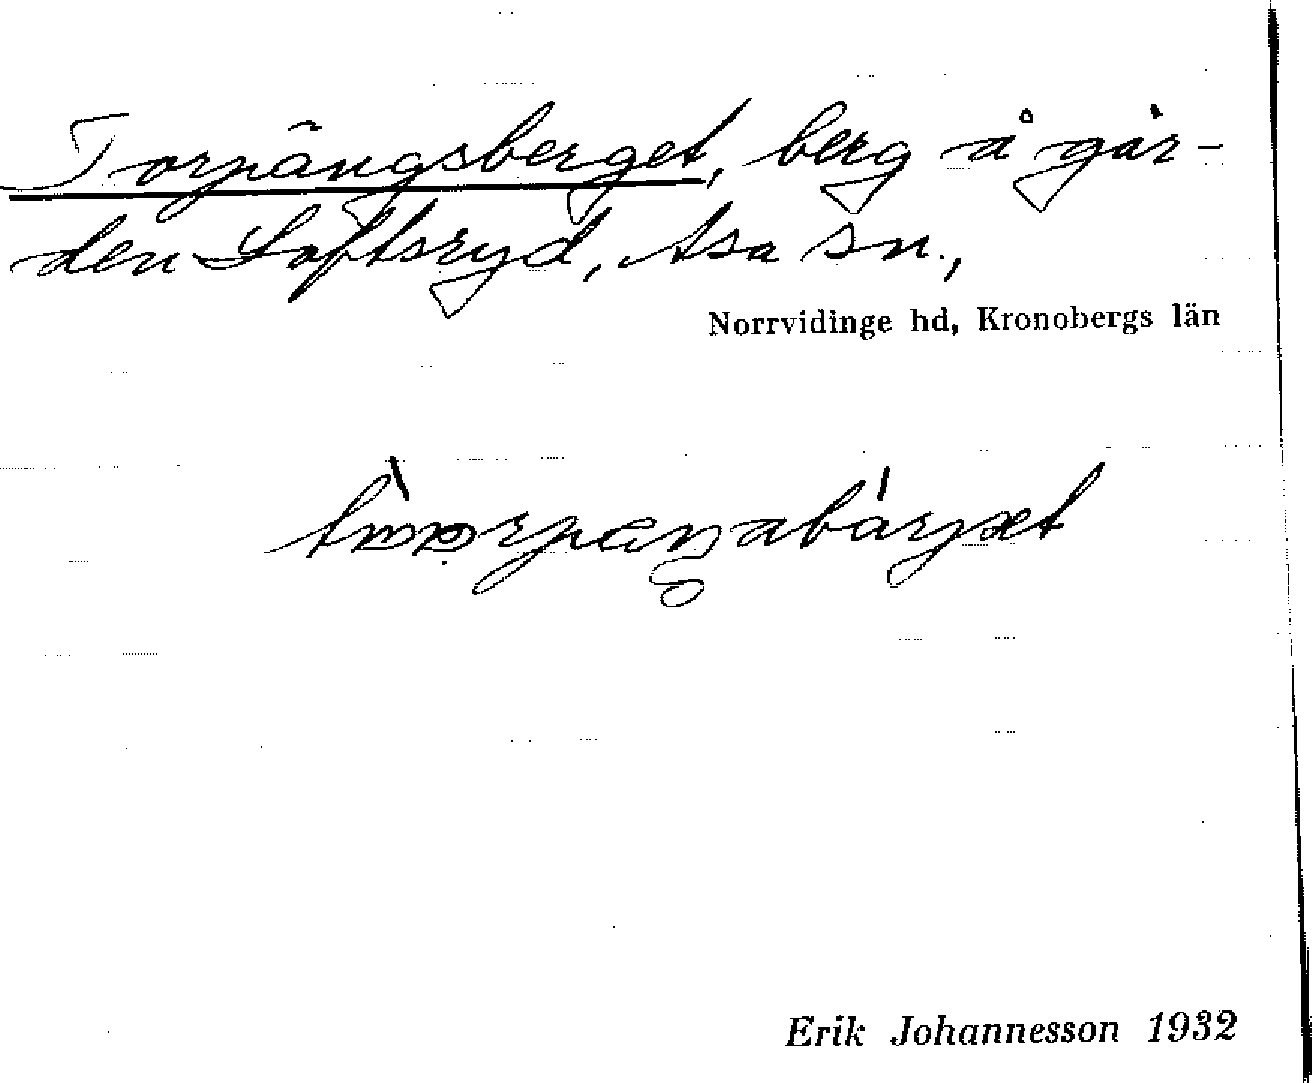 Torpängsberget, berg å går-
den Loftsryd, Asa sn.,
Norrvidinge hd, Kronobergs län
Erik Johannesson 1932